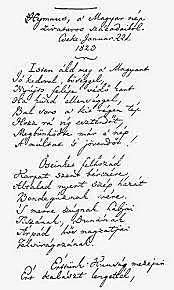 Hymnus, a Magyar nép
zivataros századaiból.
Cseke, Január. 22d.
1823
Isten áldd meg a Magyart
Jó kedvvel, bőséggel,
Nyújts feléje védő kart
Ha küzd ellenséggel;
Bal sors a kit régen tép
Hozz rá víg esztendőt,
Megbűnhődte már a nép
A multat s jövendőt!
Őseinket felhozád
Kárpát szent bérczére,
Általad nyert szép hazát
Bendegúznak vére.
S merre zúgnak habjai
Tiszának, Dunának
Árpád hős magzatjai
Felvirágozának.
Értünk Kunság mezein
Ért kalászt lengettél,